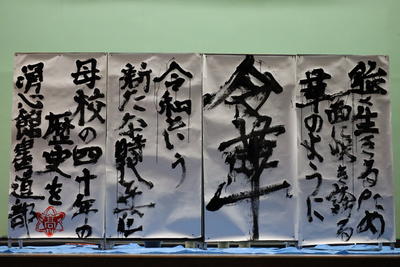 強く生きるため
一面に咲き誇る
華のように
令華
令和という
新たな時代に
母校の四十年の
歴史を
心館書道部
高